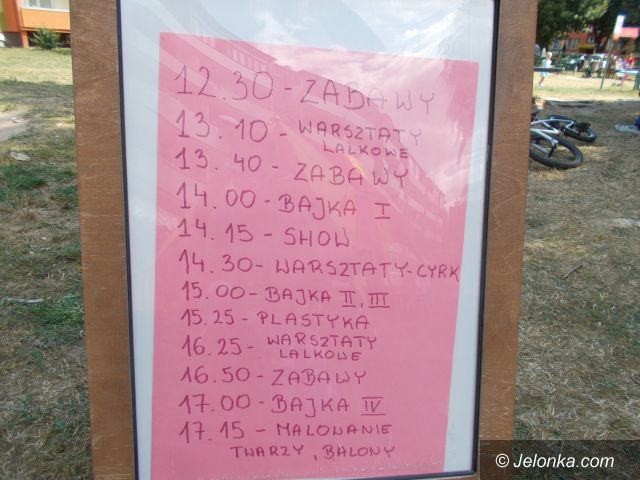 12.30 - ZABAWY
13.10 - WARSZTATY
LALKOWE
13.40 - ZABAWY
14.00 - BAJKA I
14.15 - SHOW
14.30 - WARSZTATY-CYRK
15.00 - BAJKA II, III
15.25 - PLASTYKA
16.25 - WARSZTATY
LALKOWE
16.50 - ZABAWY
17.00 - BAJKA IV
17.15 - MALOWANIE
TWARZY, BALONY
© Jelonka.com